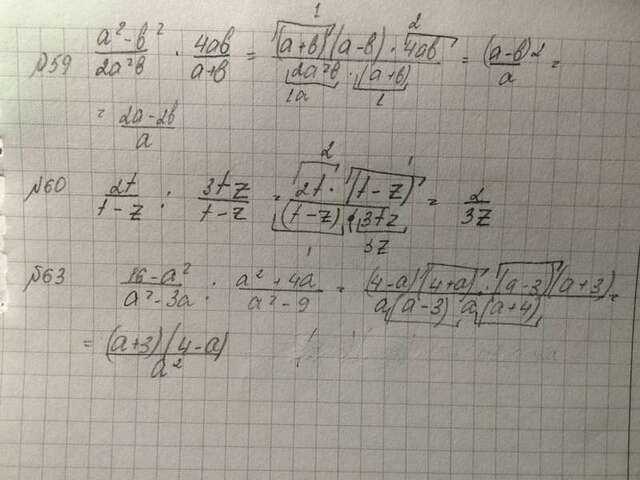 1 2
№59 a² - b² / 2a²b · 4ab / a+b = (a+b)(a-b) · 4ab / 2a²b · (a+b) = (a-b)2 / a =
1a 1
= 2a-2b / a
2 1
№60 2t / t-z : 3tz / t-z = 2t · (t-z) / (t-z) · 3tz = 2 / 3z
1 3z
№63 16-a² / a²-3a : a²+4a / a²-9 = (4-a)(4+a) · (a-3)(a+3) / a(a-3) a(a+4) =
= (a+3)(4-a) / a²